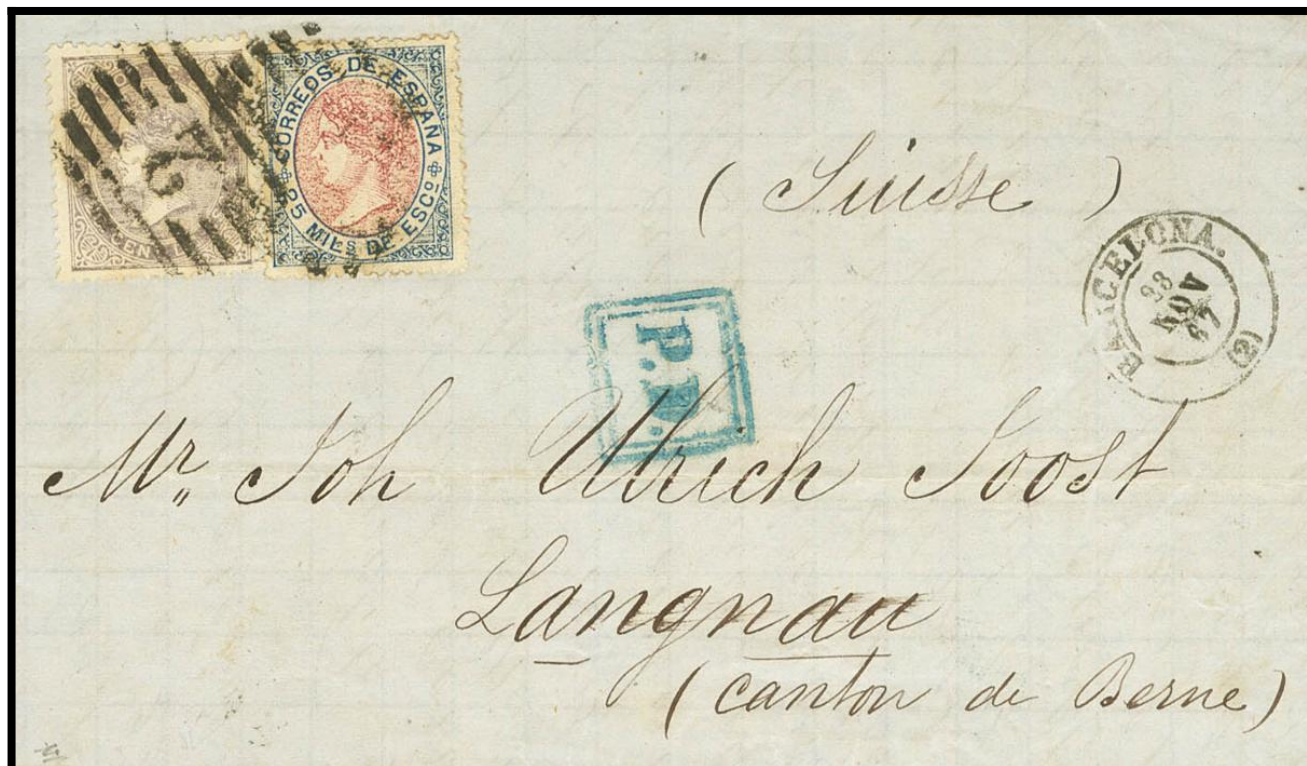 CORREOS DE ESPAÑA
25 MILS DE ESCO
2
CEN
(Suisse)
BARCELONA.
NOV
68
(2)
P.D.
Mr. Joh Ulrich Joost
Langnau
(canton de Berne)